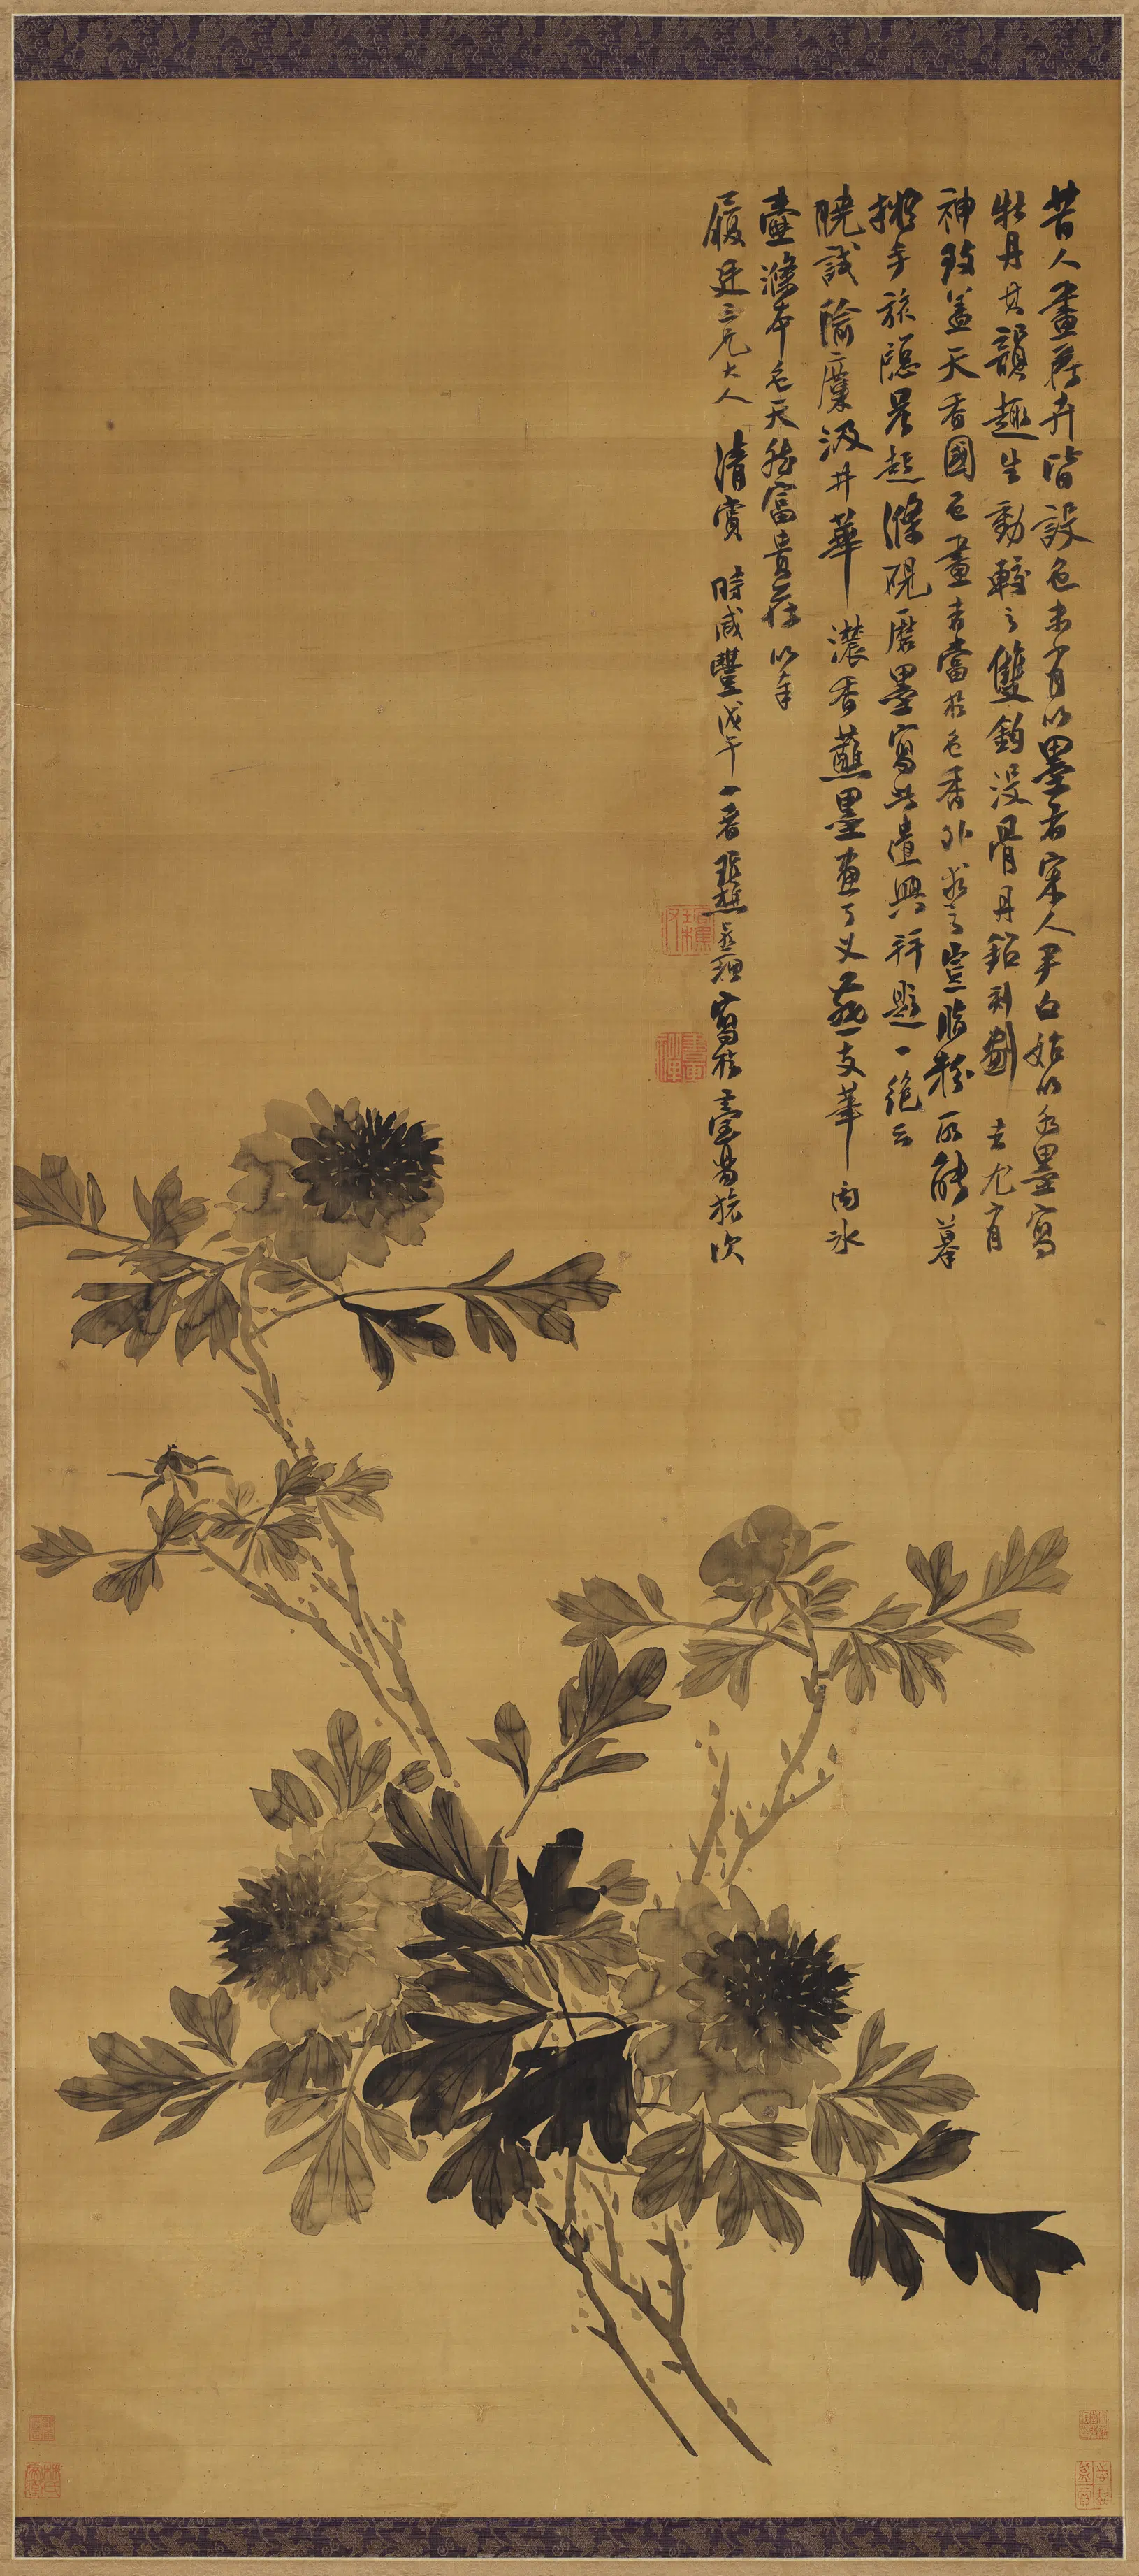 昔人畫花卉皆設色未有以墨者宋人尹白始以水墨寫
牡丹其韻趣生動較之雙鈎沒骨丹鉛刻劃者尤有
神致蓋天香國色畫者當於色香外求之豈脂粉所能摹
擬手旅隱晨起滌硯磨墨寫此遣興并題一絕云
曉試隃麋汲井華濃香蘸墨畫了义一支華向冰
壺滌本色天然富貴花以奉
履廷三兄大人清賞時咸豐戊午一春 寫於 旅次